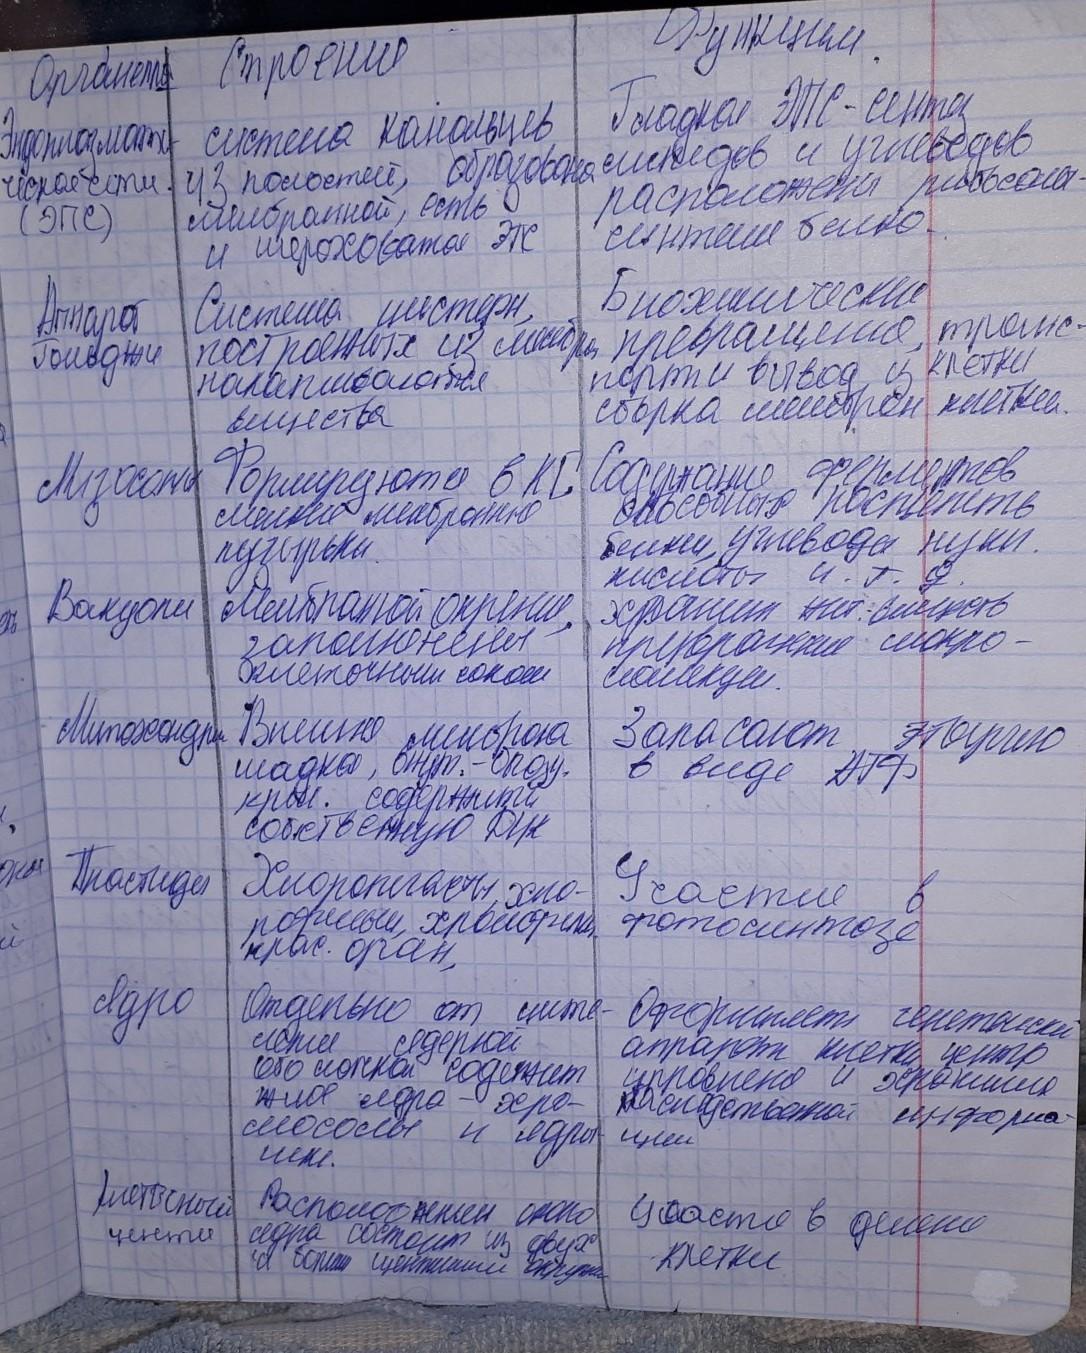 Органеллы Строение Функции.
Эндоплазмати-
ческая сеть.
(ЭПС)
система канальцев
из полостей, образована
мембранной, есть
и шероховатая ЭПС
Гладкая ЭПС - синтез
липидов и углеводов
расположены рибосомы-
синтезы белка.
Аппарат
Гольджи
Система цистерн,
построенных из мембран
накапливаются
вещества
Биохимические
превращение, транс-
порт и вывод из клетки
сборка мембран клетки.
Лизосомы
Формируются в КГ,
мелкие мембранные
пузырьки.
Содержание ферментов
способных расщепить
белки, углевода нукл.
кислоты и. т. д.
Вакуоли
Мембраной
заполнены
клеточным соком
хранит пит. веществ
превращение макро-
молекул.
Митохондрии
Внешне мембрана
гладкая, внут.-
содержит
собственную ДНК
Запасают энергию
в виде АТФ
Пластиды
Хлоропласты, хло-
крас. орган,
Участие в
фотосинтозе
Ядро
Отдельно от цито-
ядерной
оболочкой содежит
ядра - хро-
мосомы и ядры-
шки.
генетически
аппарат клетки центр
и хранение
наследственной информа-
ции
Клеточный
центр
Расположен около
ядра состоит из двух
Участе в делене
клетки